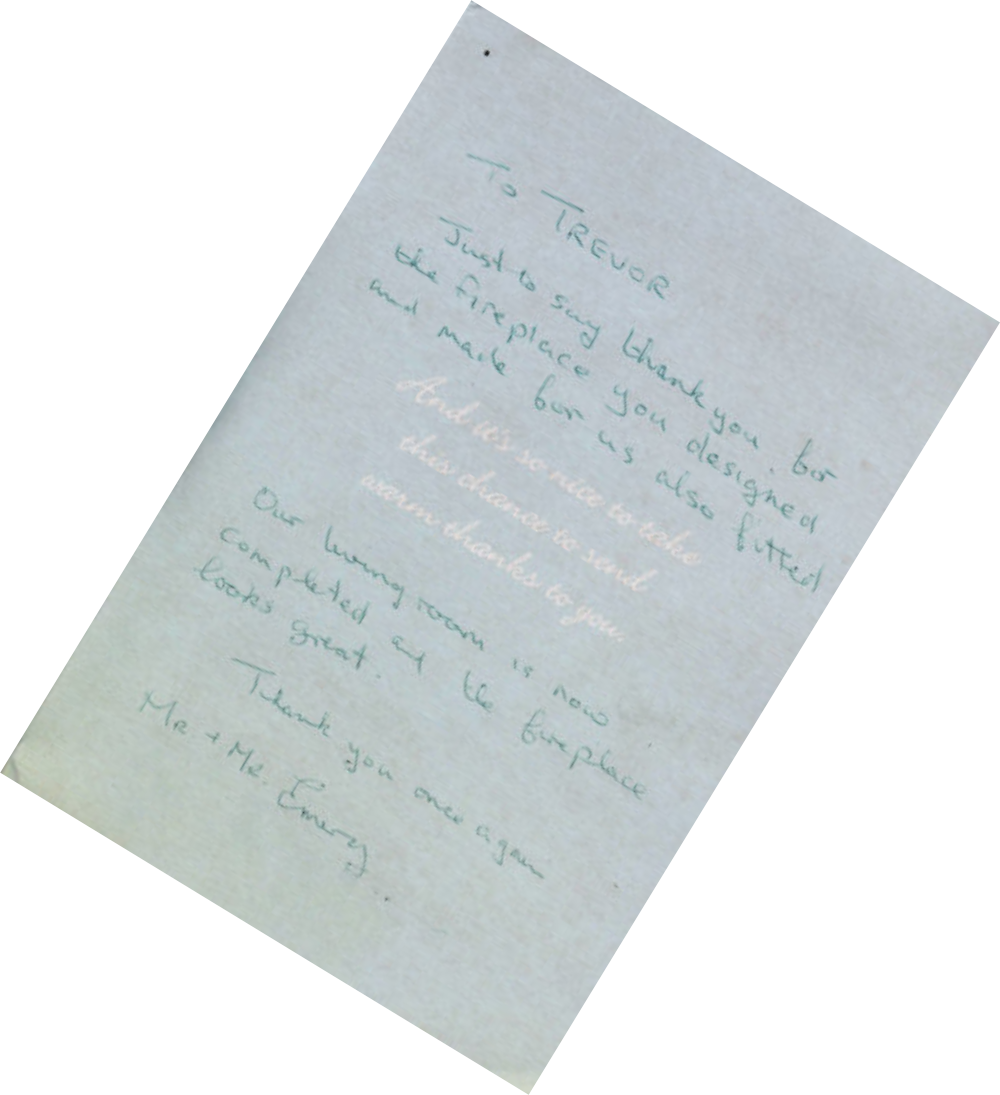 To TREVOR
Just to say thankyou for
the fireplace you designed
and made for us also fitted
And it's so nice to take
this chance to send
warm thanks to you.
Our living room is now
completed and the fireplace
looks great.
Thank you once again
Mr + Mr. Emery